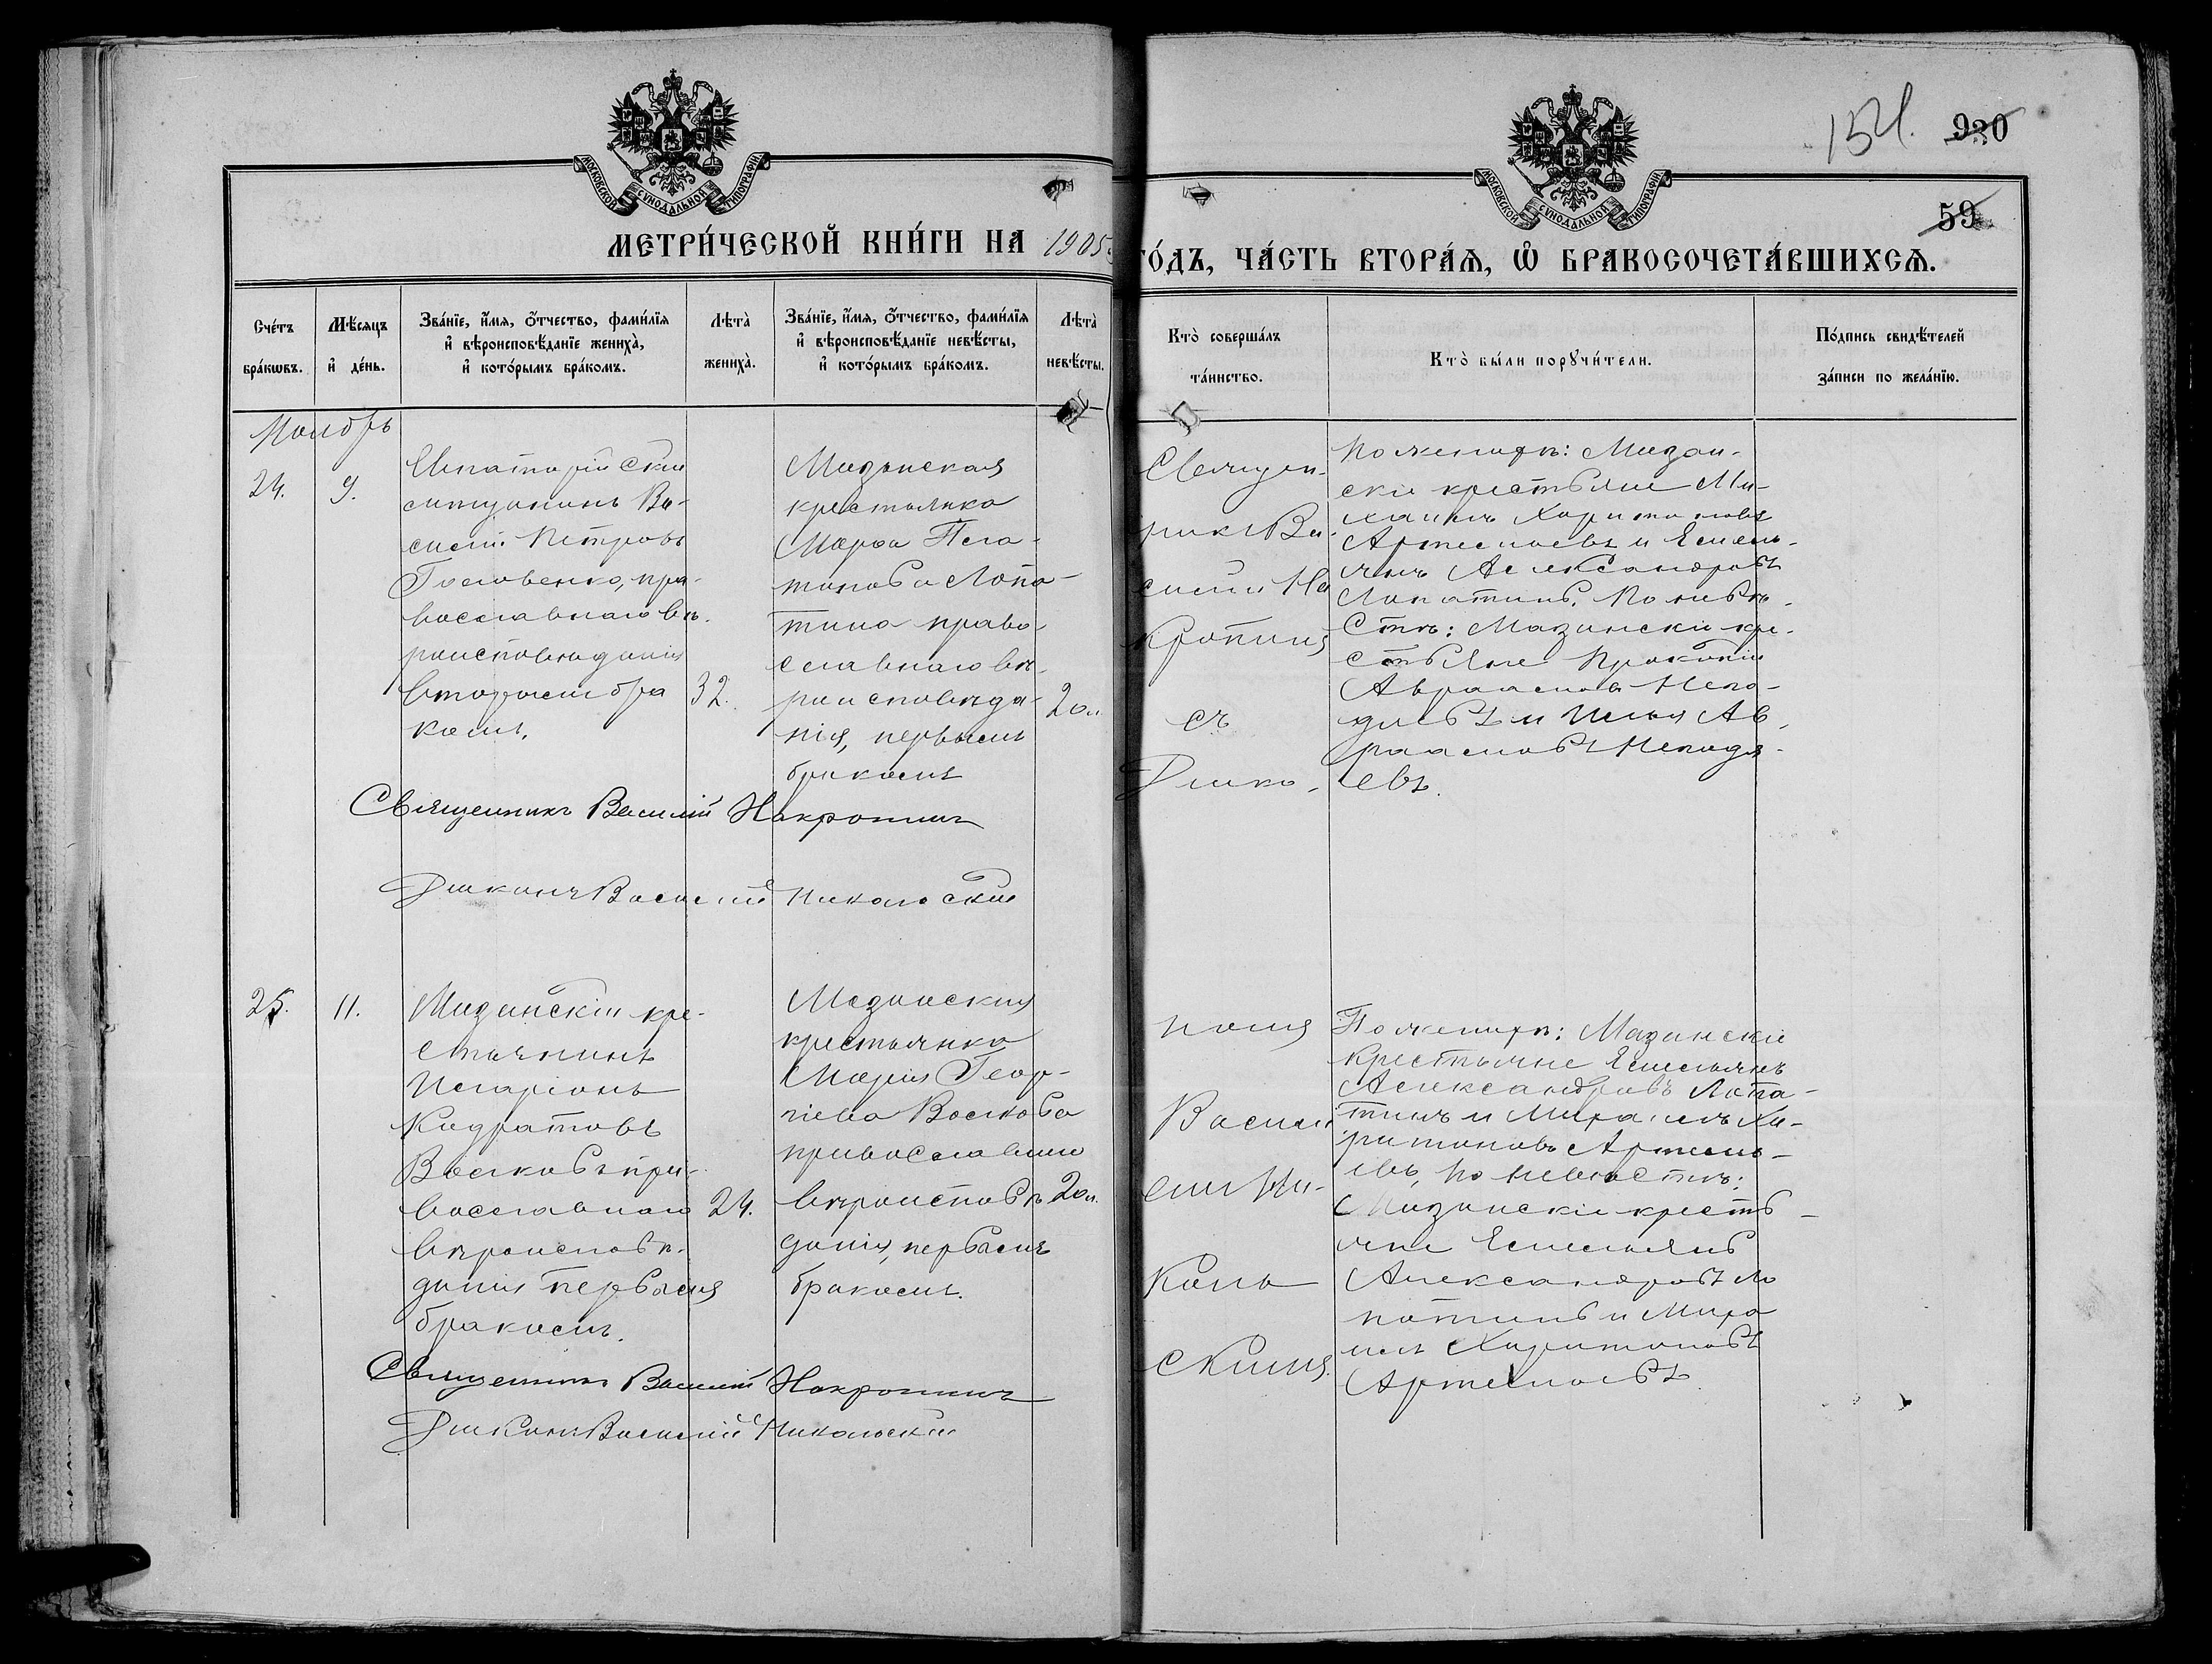 154.
930
59
МОСКОВСКОЙ СѴНОДАЛЬНОЙ ТИПОГРАФІИ
МОСКОВСКОЙ СѴНОДАЛЬНОЙ ТИПОГРАФІИ
МЕТРИ́ЧЕСКОЙ КНИ́ГИ НА 1905
ГО́ДЪ, ЧА́СТЬ ВТОРА́Я, Ѿ БРАКОСОЧЕТА́ВШИХСЯ.
Сче́тъ бра́кѡвъ.
Мѣ́сяцъ и҆ де́нь.
Зва́нїе, и҆́мя, о҆́тчество, фами́лїя
и҆ вѣроисповѣ́данїе жениха̀,
и҆ кото́рымъ бра́комъ.
Лѣта̀ жениха̀.
Зва́нїе, и҆́мя, о҆́тчество, фами́лїя
и҆ вѣроисповѣ́данїе невѣ́сты,
и҆ кото́рымъ бра́комъ.
Лѣта̀ невѣ́сты.
Кто̀ соверша́лъ та́инство.
Кто̀ бы́ли порꙋчи́тели.
По́дпись свидѣ́телей за́писи по жела́нїю.
Ноябрь
24.
9.
мѣщанинъ Ва-
силій Петровъ
пра-
вославнаго вѣ-
роисповѣданія
вторымъ бра
комъ.
32.
Мазинская
крестьянка
Марѳа
Лопа-
тина право-
славнаго вѣ-
роисповѣда-
нія, первымъ
бракомъ
20л.
Священ-
никъ Ва-
силій На
кропинъ
съ
Діако-
номъ
Васил
емъ Ни-
коль
скимъ.
По женихѣ: Мазин-
скіе крестьяне Ми-
хаилъ Харитоновъ
Артемьевъ и Емель-
янъ Александровъ
Лопатинъ. По невѣ-
стѣ: Мазинскіе кре-
стьяне Прокопій
Авраамовъ Непо-
дяевъ и Илья Ав-
раамовъ Неподя-
евъ.
Священникъ Василій Накропинъ
Діаконъ Василій Никольскій
25.
11.
Мазинскій кре-
стьянинъ
Иларіонъ
Кодратовъ
Волковъ пра-
вославнаго
вѣроисповѣ-
данія первымъ
бракомъ.
24.
Мазинская
крестьянка
Марія Геор-
гіева Волкова
православнаго
вѣроисповѣ
данія, первымъ
бракомъ.
20л.
По женихѣ: Мазинскіе
крестьяне Емельянъ
Александровъ Лопа-
тинъ и Михаилъ Ха-
ритоновъ Артемь-
евъ, по невѣстѣ:
Мазинскіе кресть-
яне Емельянъ
Александровъ Ло
патинъ и Миха
илъ Харитоновъ
Артемьевъ.
Священникъ Василій Накропинъ
Діаконъ Василій Никольскій